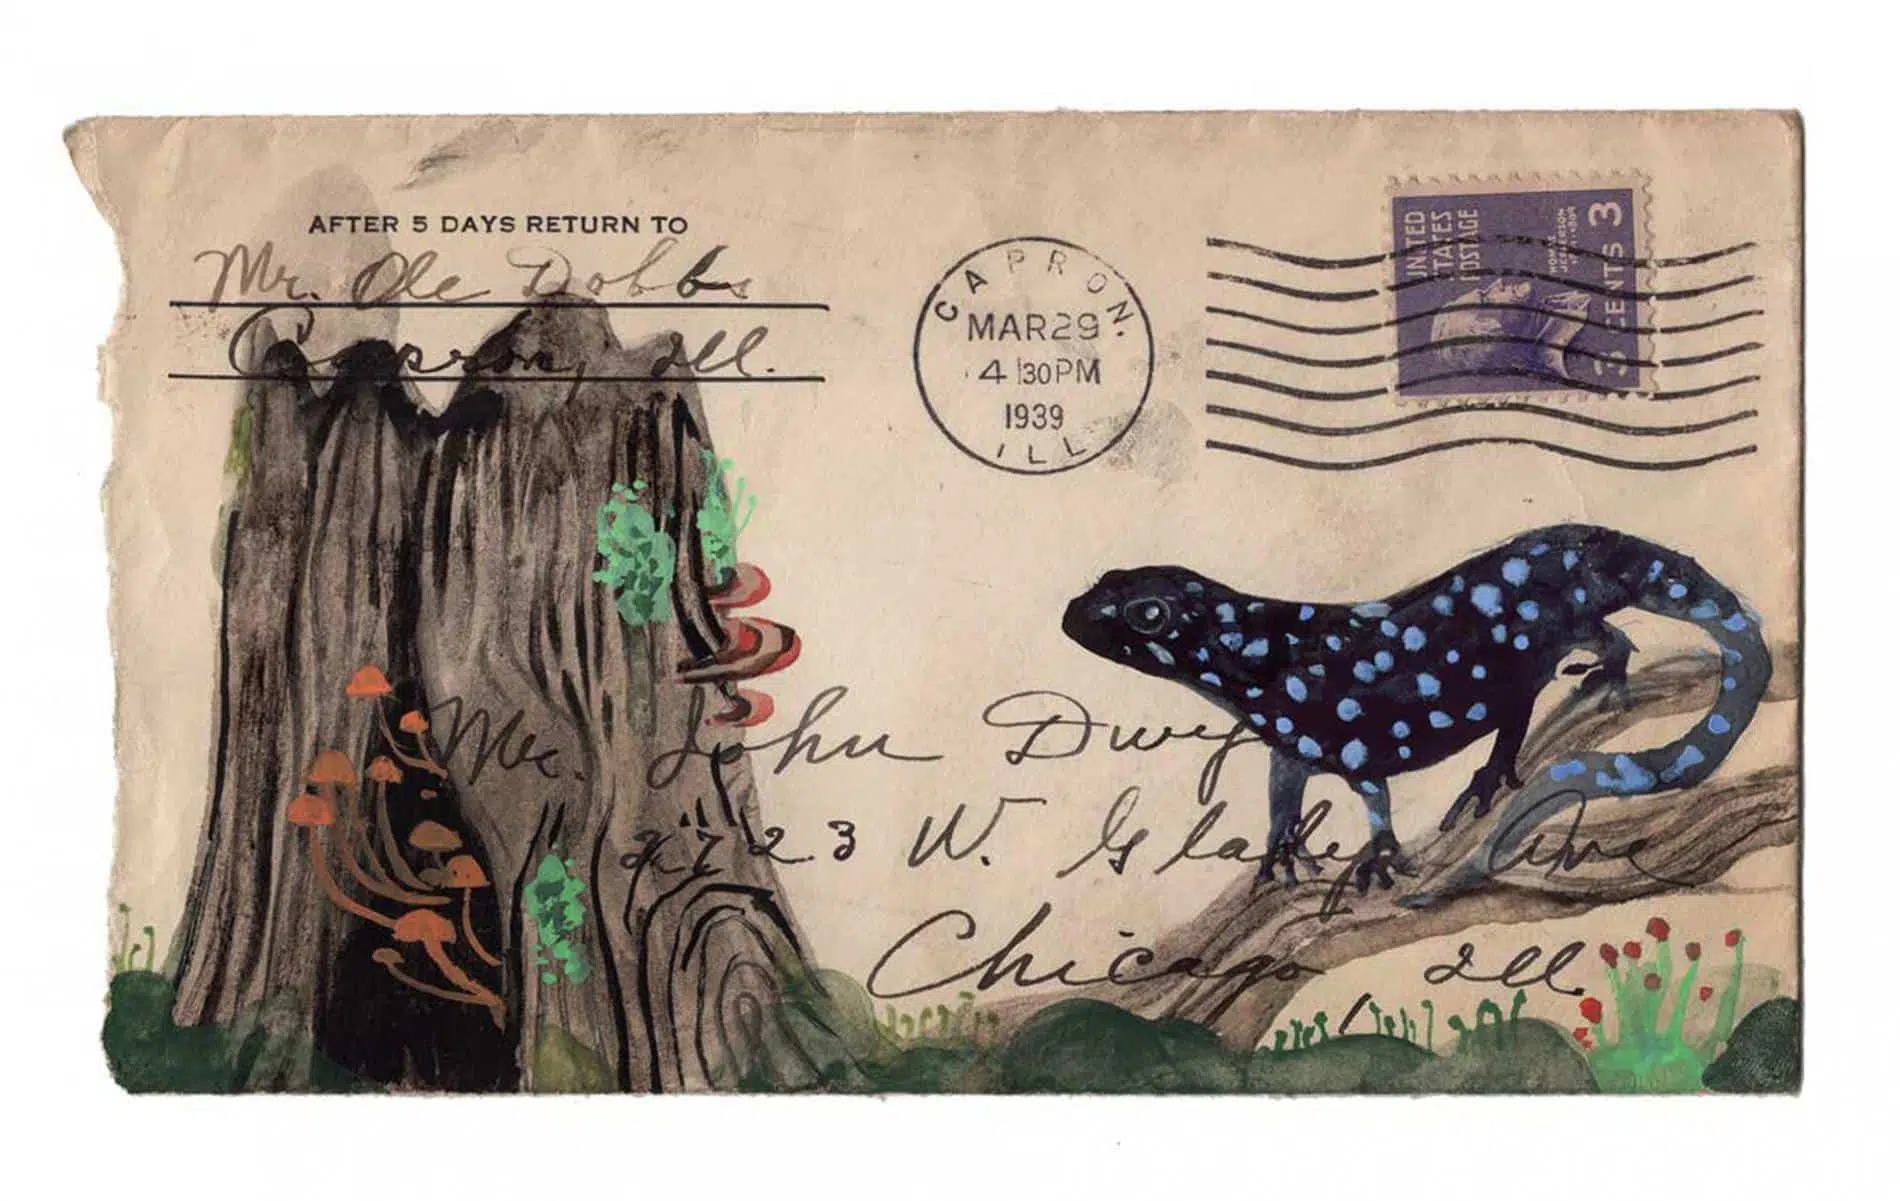 AFTER 5 DAYS RETURN TO
Mr. Ole Dobbs
Capron, Ill.
CAPRON.
MAR 29
4 30 PM
1939
ILL
UNITED
STATES
POSTAGE
THOMAS
JEFFERSON
3 CENTS 3
Mr. John Dwy
2723 W. Glady Ave
Chicago Ill